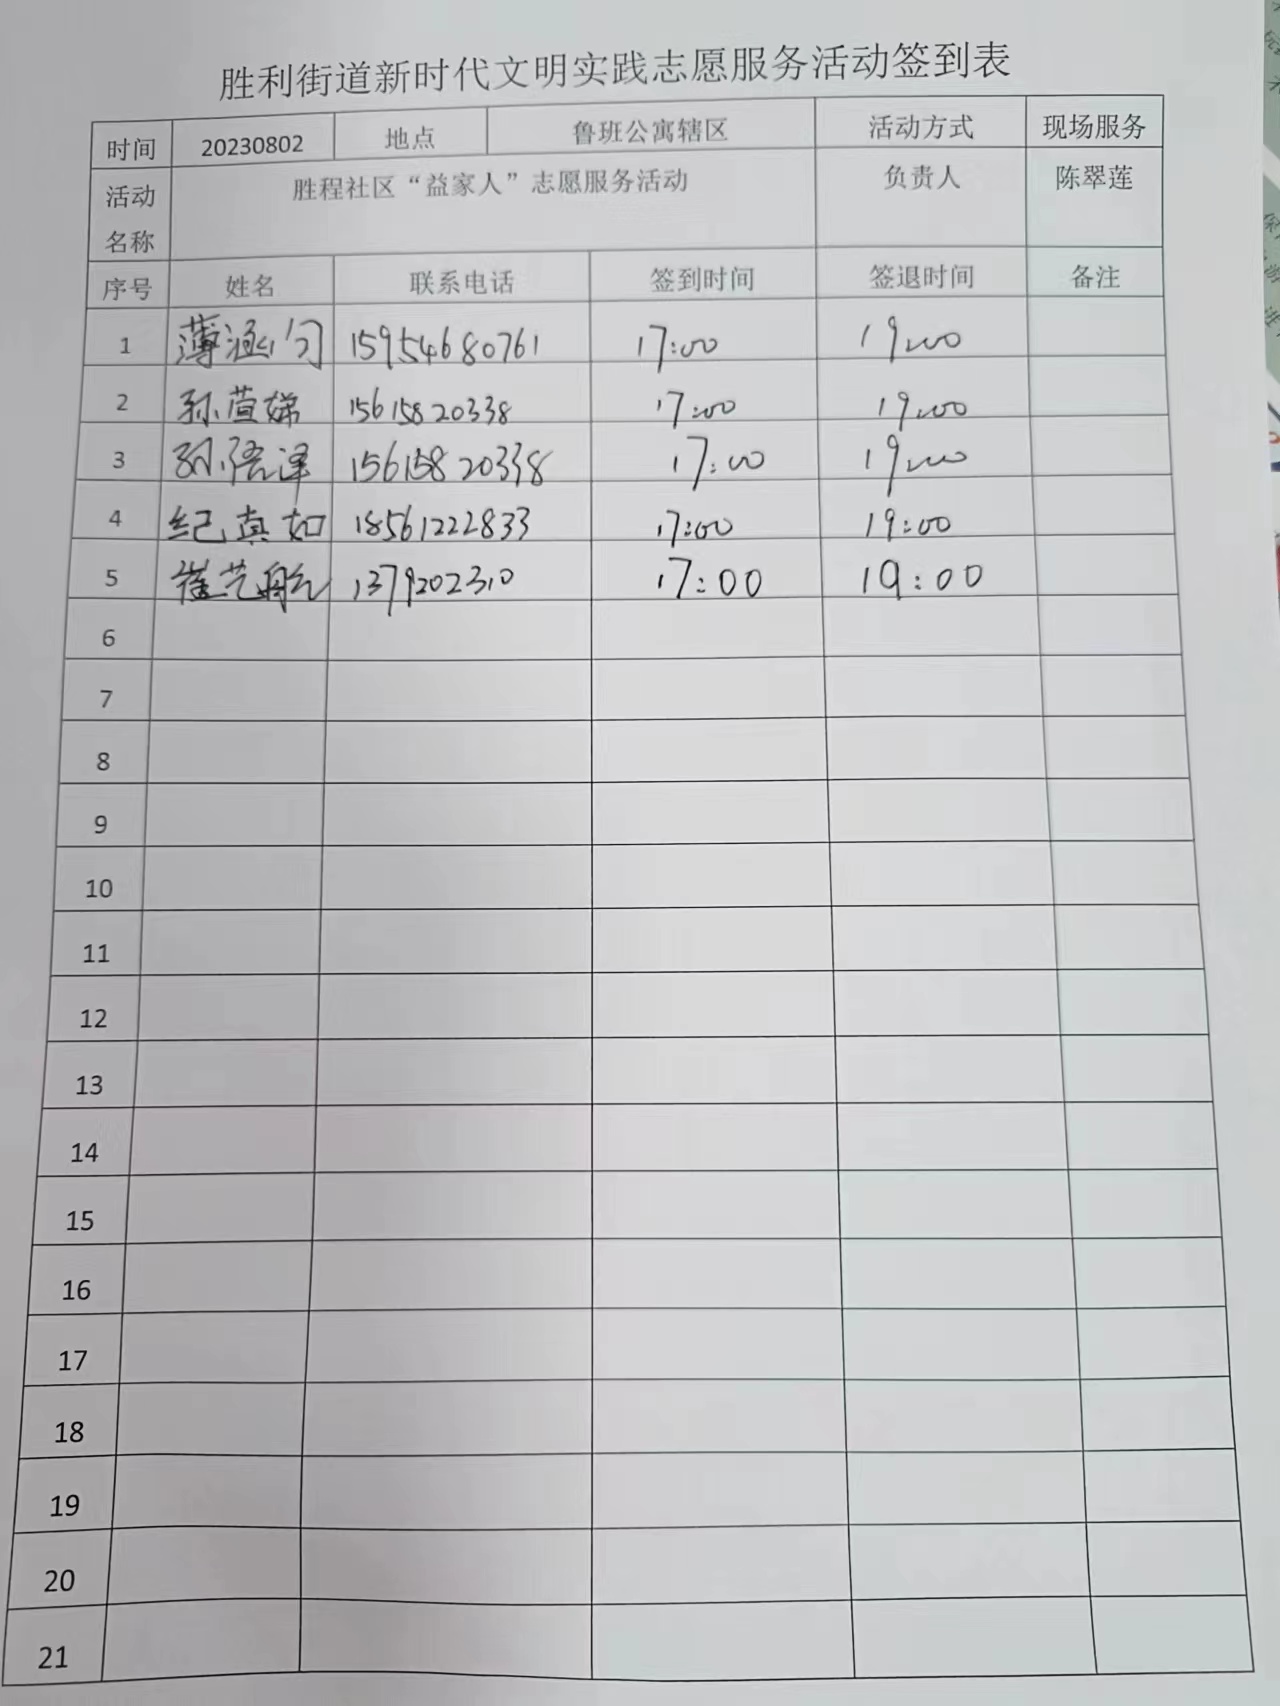 胜利街道新时代文明实践志愿服务活动签到表
时间 20230802 地点 鲁班公寓辖区 活动方式 现场服务
活动名称 胜程社区“益家人”志愿服务活动 负责人 陈翠莲
序号 姓名 联系电话 签到时间 签退时间 备注
1 薄涵匀 15954680761 17:00 19:00
2 孙萱娣 15615820338 17:00 19:00
3 孙浯泽 15615820338 17:00 19:00
4 纪真如 18561222833 17:00 19:00
5 崔艺航 1379202310 17:00 19:00
6
7
8
9
10
11
12
13
14
15
16
17
18
19
20
21